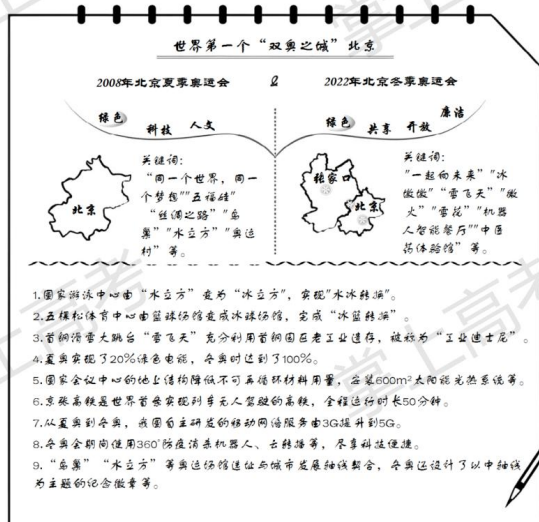 世界第一个“双奥之城”北京
2008年北京夏季奥运会 & 2022年北京冬季奥运会
绿色 科技 人文
绿色 共享 开放 廉洁
关键词:
“同一个世界，同一
个梦想”“五福娃”
“丝绸之路”“鸟
巢”“水立方”“奥运
村”等。
北京
张家口
北京
关键词:
“一起向未来”“冰
墩墩”“雪飞天”“微
火”“雪花”“机器
人智能餐厅”“中医
药体验馆”等。
1.国家游泳中心由“水立方”变为“冰立方”，实现“水冰转换”。
2.五棵松体育中心由篮球场馆变成冰球场馆，完成“冰篮转换”。
3.首钢滑雪大跳台“雪飞天”充分利用首钢园区老工业遗存，被称为“工业迪士尼”。
4.夏奥实现了20%绿色电能，冬奥时达到了100%。
5.国家会议中心的地上结构降低不可再循环材料用量，安装600m²太阳能光热系统等。
6.京张高铁是世界首条实现列车无人驾驶的高铁，全程运行时长50分钟。
7.从夏奥到冬奥，我国自主研发的移动网络服务由3G提升到5G。
8.冬奥会期间使用360°防疫消杀机器人、云转播等，尽享科技便捷。
9.“鸟巢”“水立方”等奥运场馆选址与城市发展轴线契合，冬奥还设计了以中轴线
为主题的纪念徽章等。
掌上高考
掌上高考